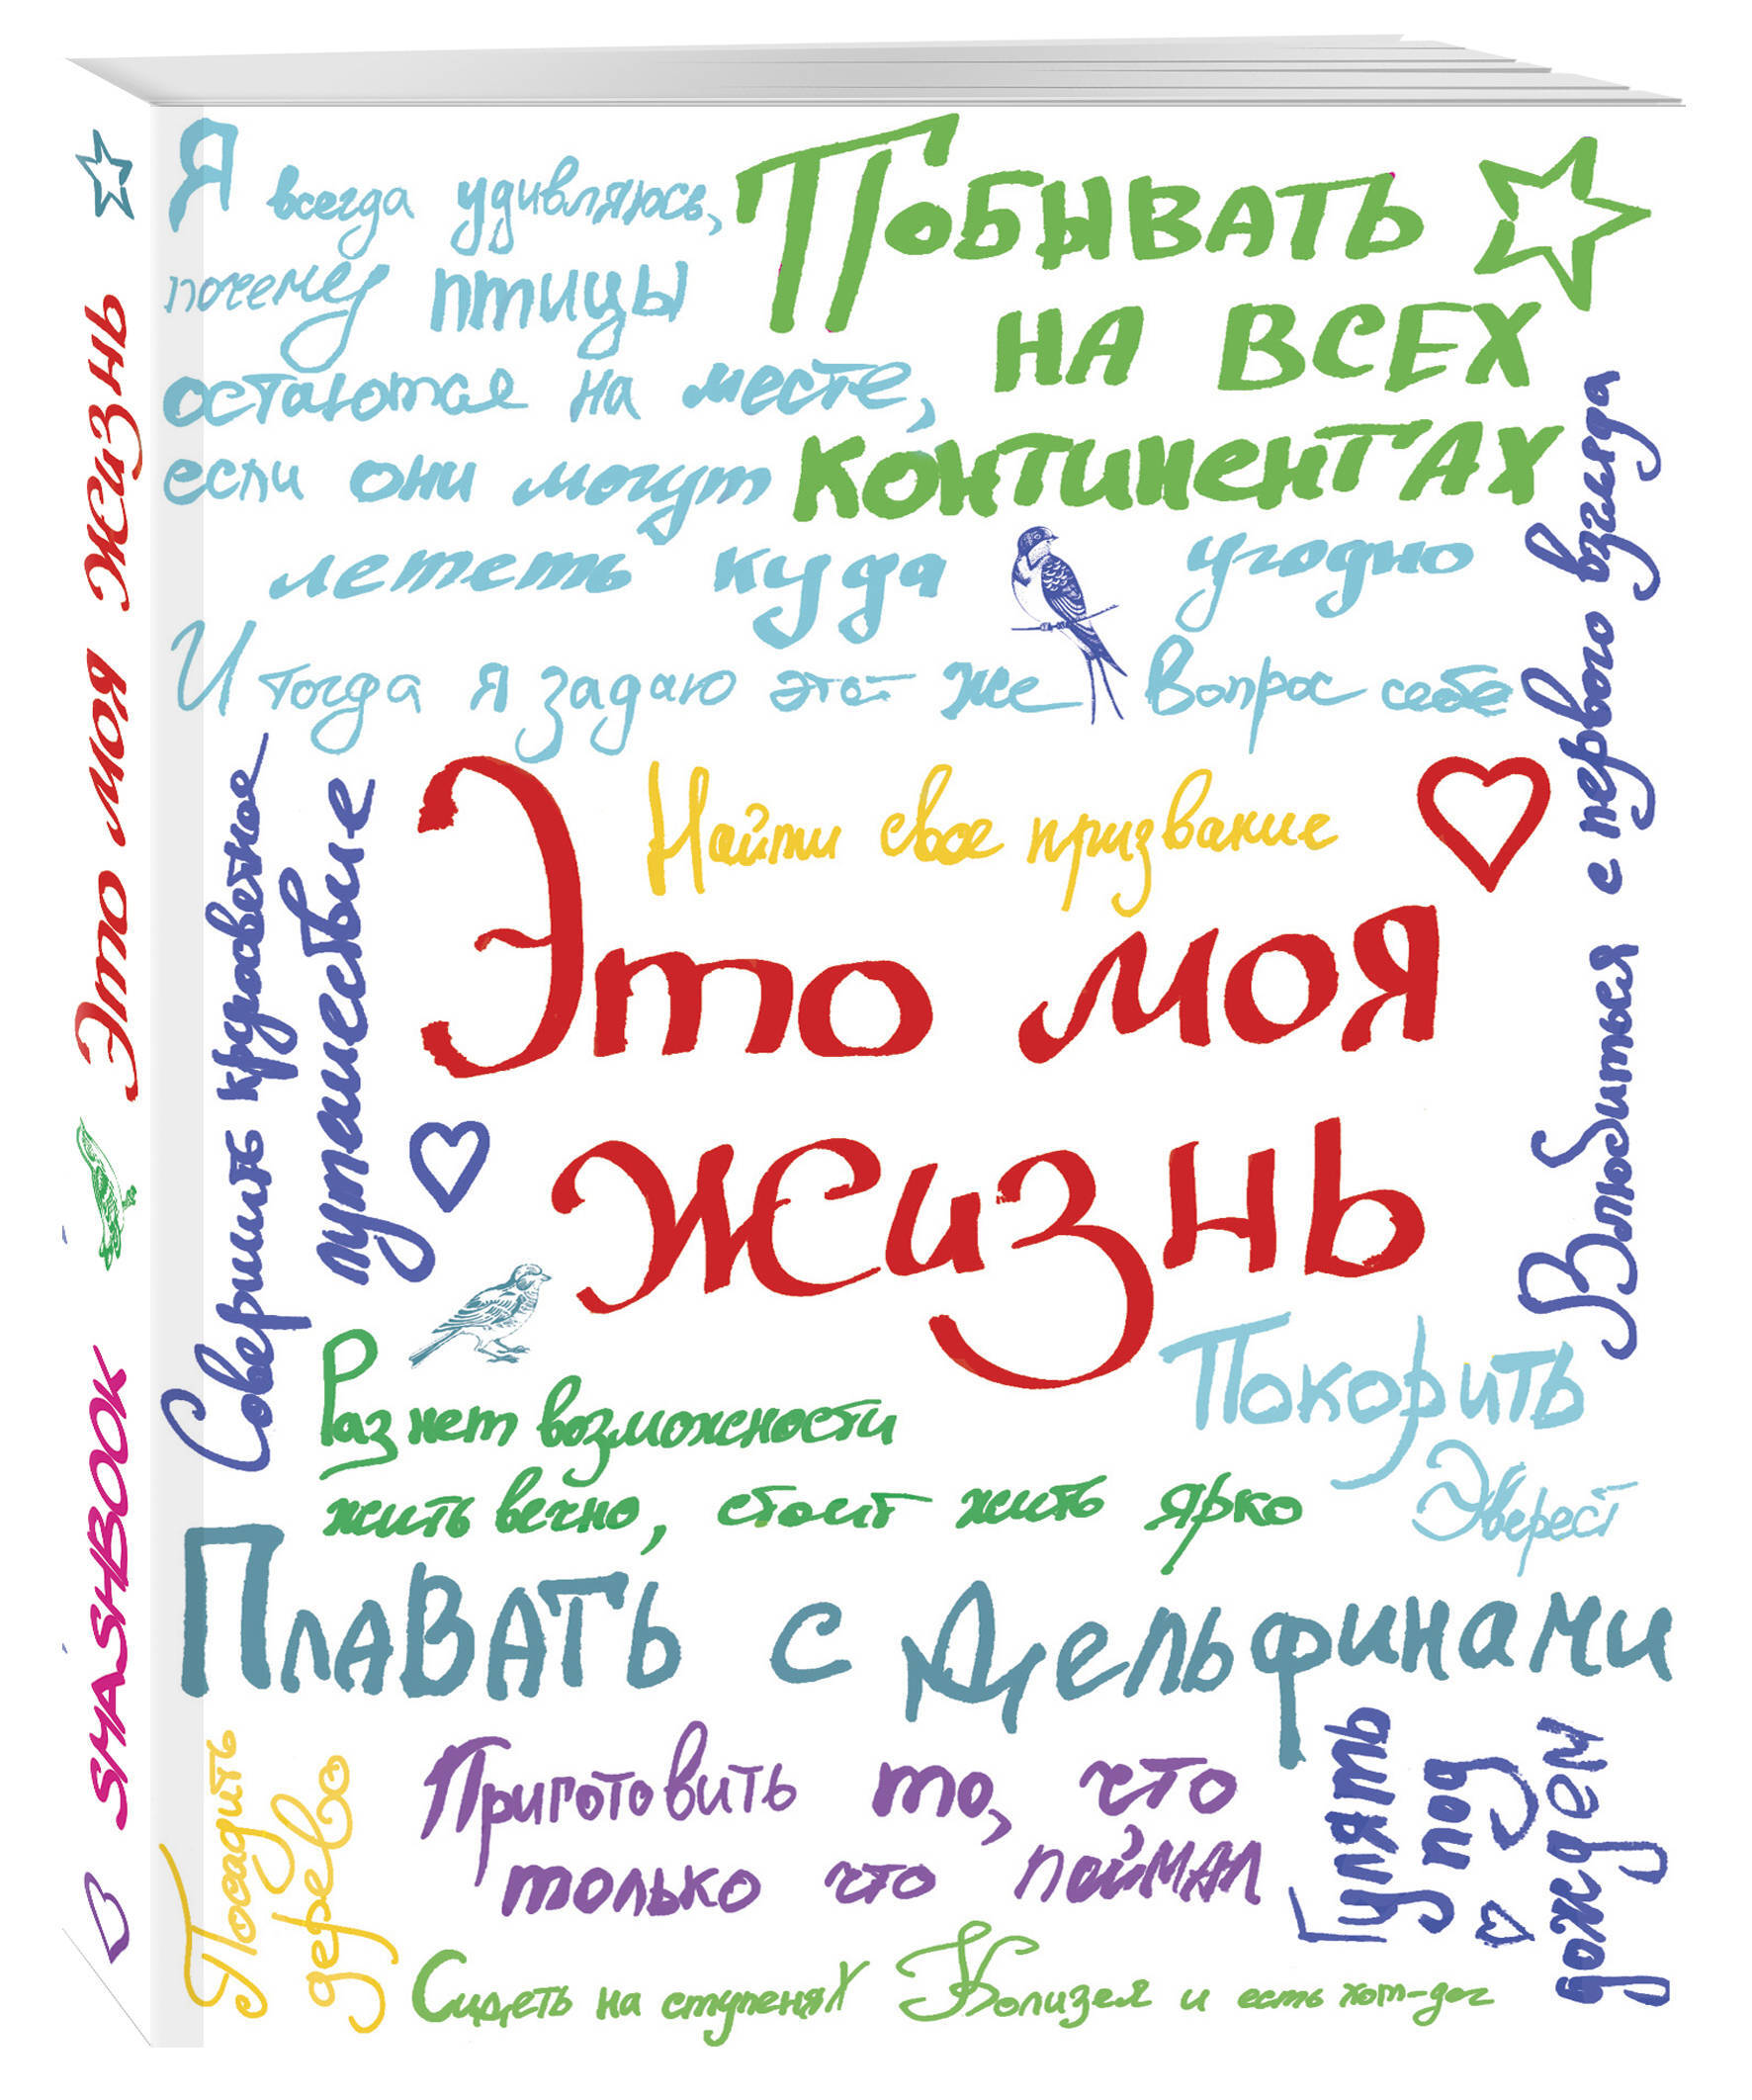 Я всегда удивляюсь,
почему птицы
остаются на месте,
если они могут
лететь куда угодно
И тогда я задаю этот же вопрос себе
Побывать
на всех
континентах
Влюбиться с первого взгляда
Найти свое призвание
Это моя
жизнь
Совершить кругосветное
путешествие
Раз нет возможности
жить вечно, стоит жить ярко
Покорить
Эверест
Плавать с дельфинами
Посадить
дерево
Приготовить то, что
только что поймал
Гулять
под
дождем
Сидеть на ступенях Колизея и есть хот-дог
SMASHBOOK Это моя жизнь